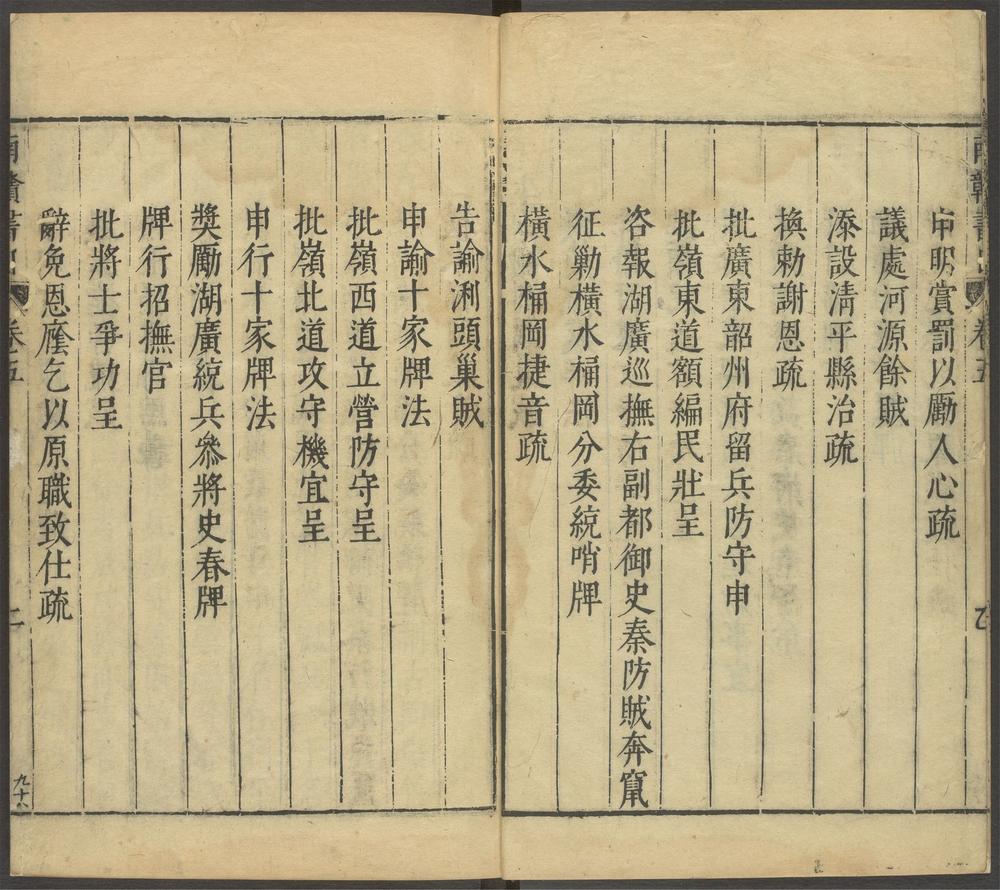 申明賞罰以勵人心疏
議處河源餘賊
添設清平縣治疏
換勅謝恩疏
批廣東韶州府留兵防守申
批嶺東道額編民壯呈
咨報湖廣巡撫右副都御史秦防賊奔竄
征勦橫水桶岡分委統哨牌
橫水桶岡捷音疏
告諭浰頭巢賊
申諭十家牌法
批嶺西道立營防守呈
批嶺北道攻守機宜呈
申行十家牌法
奬勵湖廣統兵叅將史春牌
牌行招撫官
批將士爭功呈
辭免恩廕乞以原職致仕疏
卷五
二
九十八